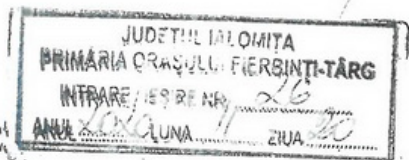 JUDEȚUL IALOMIȚA
PRIMĂRIA ORAȘULUI FIERBINȚI-TÂRG
INTRARE/IEȘIRE NR. 26
ANUL 2020 LUNA ZIUA 20